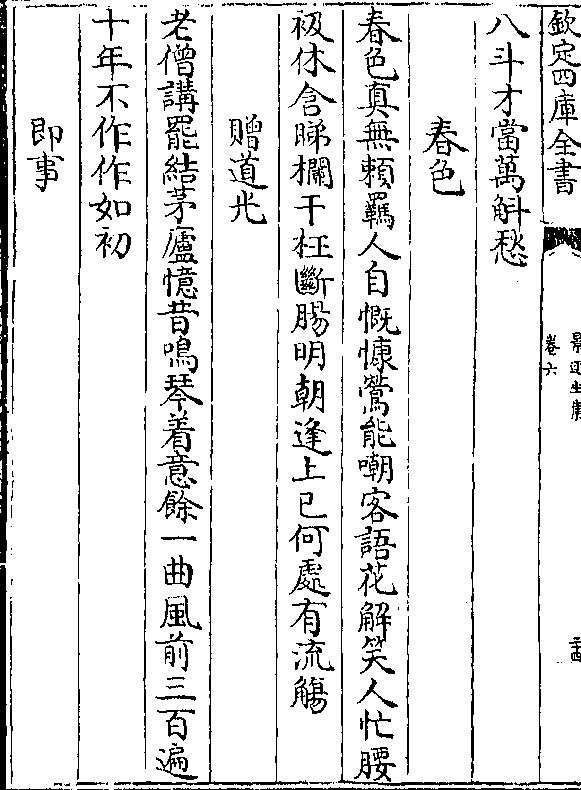 欽定四庫全書
景迂生集
卷六
八斗才當萬斛愁
春色
春色真無賴羈人自慨慷鶯能嘲客語花解笑人忙腰
衱休含睇欄干枉斷腸明朝逢上巳何處有流觴
贈道光
老僧講罷結茅廬憶昔鳴琴着意餘一曲風前三百遍
十年不作作如初
即事